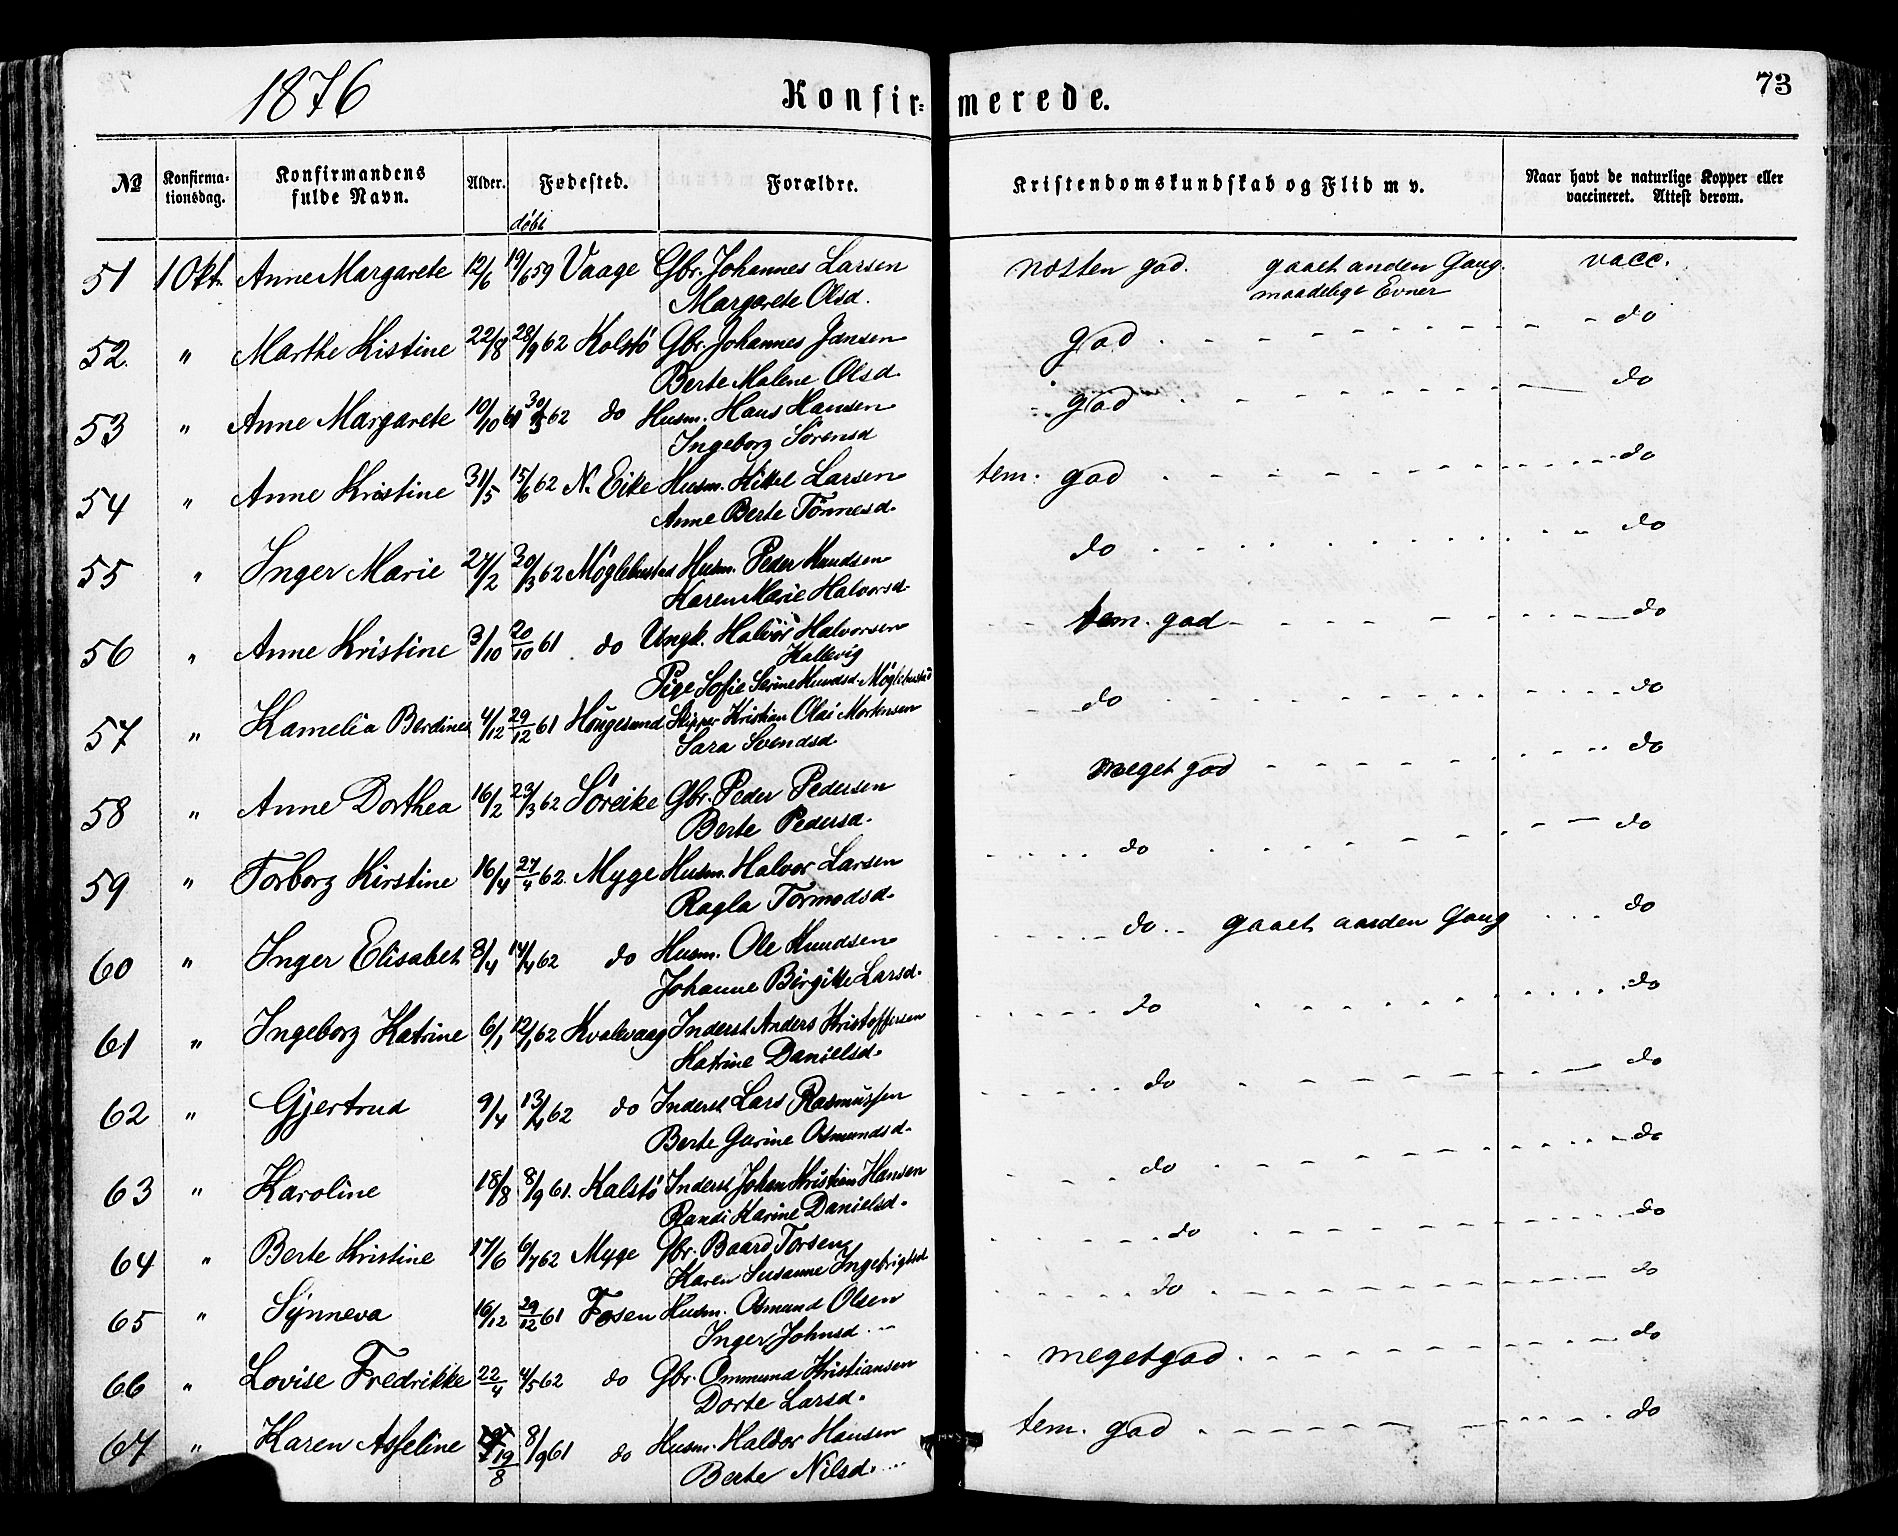 1876 Konfirmerede. 73
№ Konfirmationsdag. Konfirmandens fulde Navn. Alder. Fødested. Forældre. Kristendomskundskab og Flid m v. Naar havt de naturlige Kopper eller vaccineret. Attest derom.
döbt
51 1 Okt. Anne Margarete 12/6 19/6 59 Vaage Gbr. Johannes Larsen næsten god. gaaet anden Gang. vacc.
Margarete Olsd. maadelige Evner
52. " Marthe Kistine 22/8 28/9 62 Kolstö Gbr. Johannes Jansen god do
Berte Malene Olsd.
53 " Anne Margarete 10/10 61 30/3 62 do Husm. Hans Hansen god do
Ingeborg Sörensd
54 " Anne Kristine 31/5 15/6 62 N. Eike Husm. Kittel Larsen tem. god do
Anne Berte Tönnesd.
55 " Inger Marie 27/2 30/3 62 Möglebustad Husm. Peder Knudsen do do
Karen Marie Halvorsd.
56 " Anne Kristine 3/10 20/10 61 do Ungk. Halvor Halvorsen tem. god do
Kallevig
Pige Sofie Serine Knudsd. Möglebustad
57 " Kamelia Berdines 4/12 29/12 61 Hougesund Skipper Kristian Olai Mortensen do do
Sara Svendsd.
58 " Anne Dorthea 16/2 23/3 62 Söreike Gbr. Peder Pedersen meget god do
Berte Pedersd.
59 " Torborg Kirstine 16/4 27/4 62. Myge Husm. Halvor Larsen do do
Ragla Tormodsd.
60 " Inger Elisabet 8/4 14/4 62 do Husm. Ole Knudsen do gaaet anden Gang do
Johanne Birgitte Larsd.
61 " Ingeborg Katrine 6/1 12/1 62 Kvalevaag Inderst Anders Kristoffersen do do
Katrine Danielsd.
62 " Gjertrud 9/4 13/4 62 do Inderst Lars Rasmussen do do
Berte Gurine Osmundsd.
63 " Karoline 18/8 8/9 61. Kalstö Inderst Johan Kristian Hansen do do
Randi Karine Danielsd.
64 " Berte Kristine 17/6 6/7 62 Myge Gbr. Baard Torsen do do
Karen Susanne Ingebrigtsd
65 " Synneva 16/12 29/12 61 Fosen Husm. Osmund Olsen do do
Inger Johnsd.
66 " Lovise Fredrikke 22/4 4/5 62 do Gbr. Ommund Kristiansen meget god do
Dorte Larsd.
67 " Karen Asseline 19/8 8/9 61 do Husm. Haldor Hansen tem. god do
Berte Nilsd.